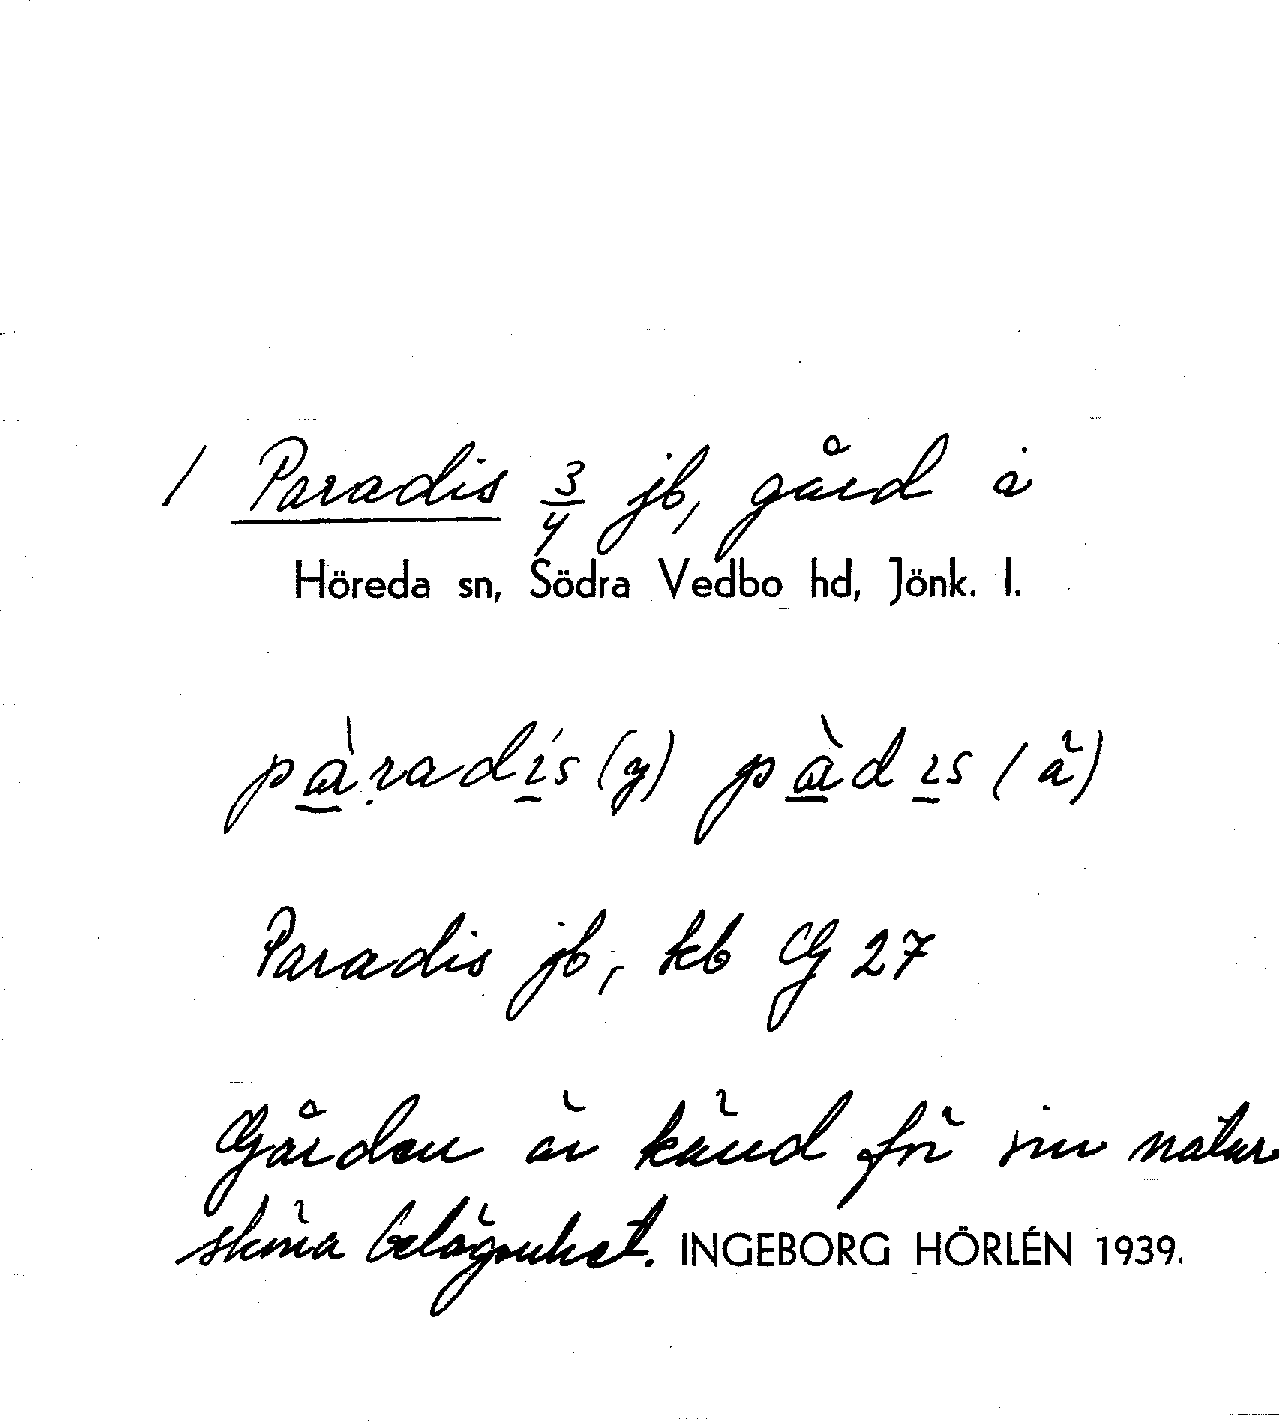 / Paradis 3/4 jb, gård i
Höreda sn, Södra Vedbo hd, Jönk. l.
pàradís (y) pàdɪs (ä)
Paradis jb, kb G 27
Gården är känd för sin natur
sköna belägenhet. INGEBORG HÖRLÉN 1939.